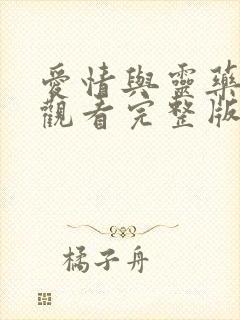 愛情與靈藥
觀看完整版
橘子舟